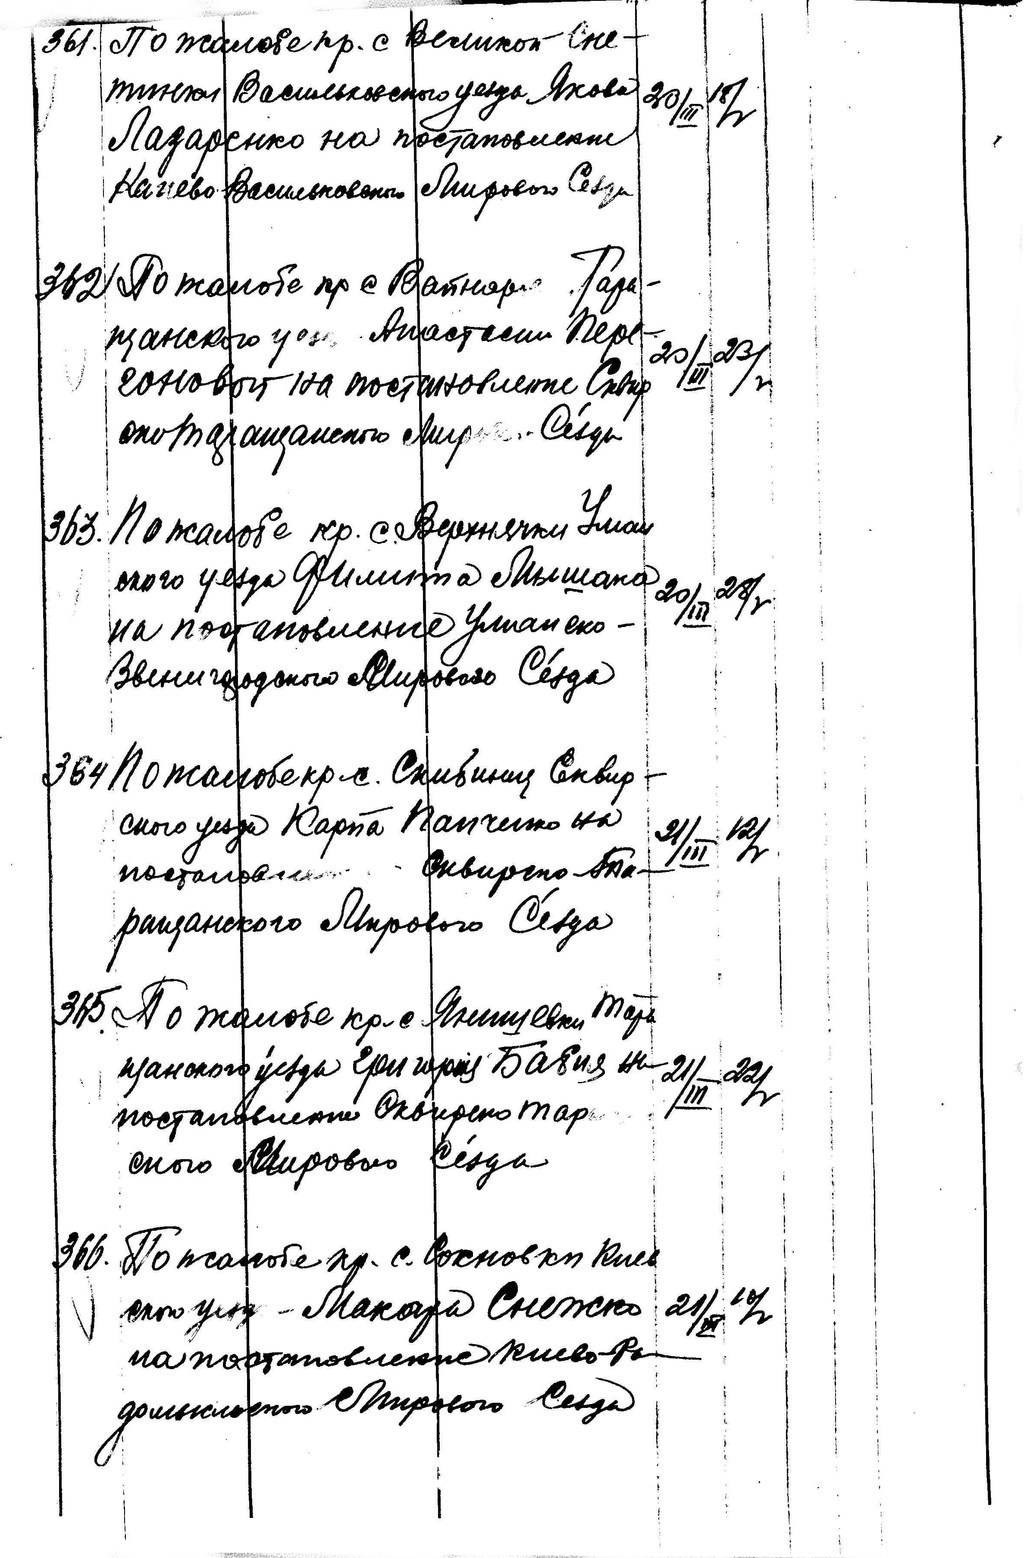 361. По жалобе кр. с Великой Сне-
тинки Васильковского уезда Якова
20/III 18/V
Лазаренко на постановление
Киево Васильковского Мирового Сезда
362 По жалобе кр с Ватняра
Тара-
щанского Анастасии Пере-
20/III 23/V
гоновой на постановление Сквир
ско Таращанского Миров Сезда
363. По жалобе кр. с. Верхнячки Уман
ского уезда Филиппа Мышака
20/III 28/V
на постановление Уманско-
Звенигородского Мирового Сезда
364 По жалобе кр. с. Скибинец Сквир-
ского уезда Карпа Панченко на
21/III 12/V
постановле Сквирско-Та-
ращанского Мирового Сезда
365. По жалобе кр. с Янишевки Тара
щанского уезда Григория Бабия на
21/III 22/V
постановление Сквирско Тар
ского Мирового Сезда
366. По жалобе кр. с. Сокновки Киев
ского уезд - Макара Снежко
21/III
на постановление Киево-Ра-
домысльского Мирового Сезда